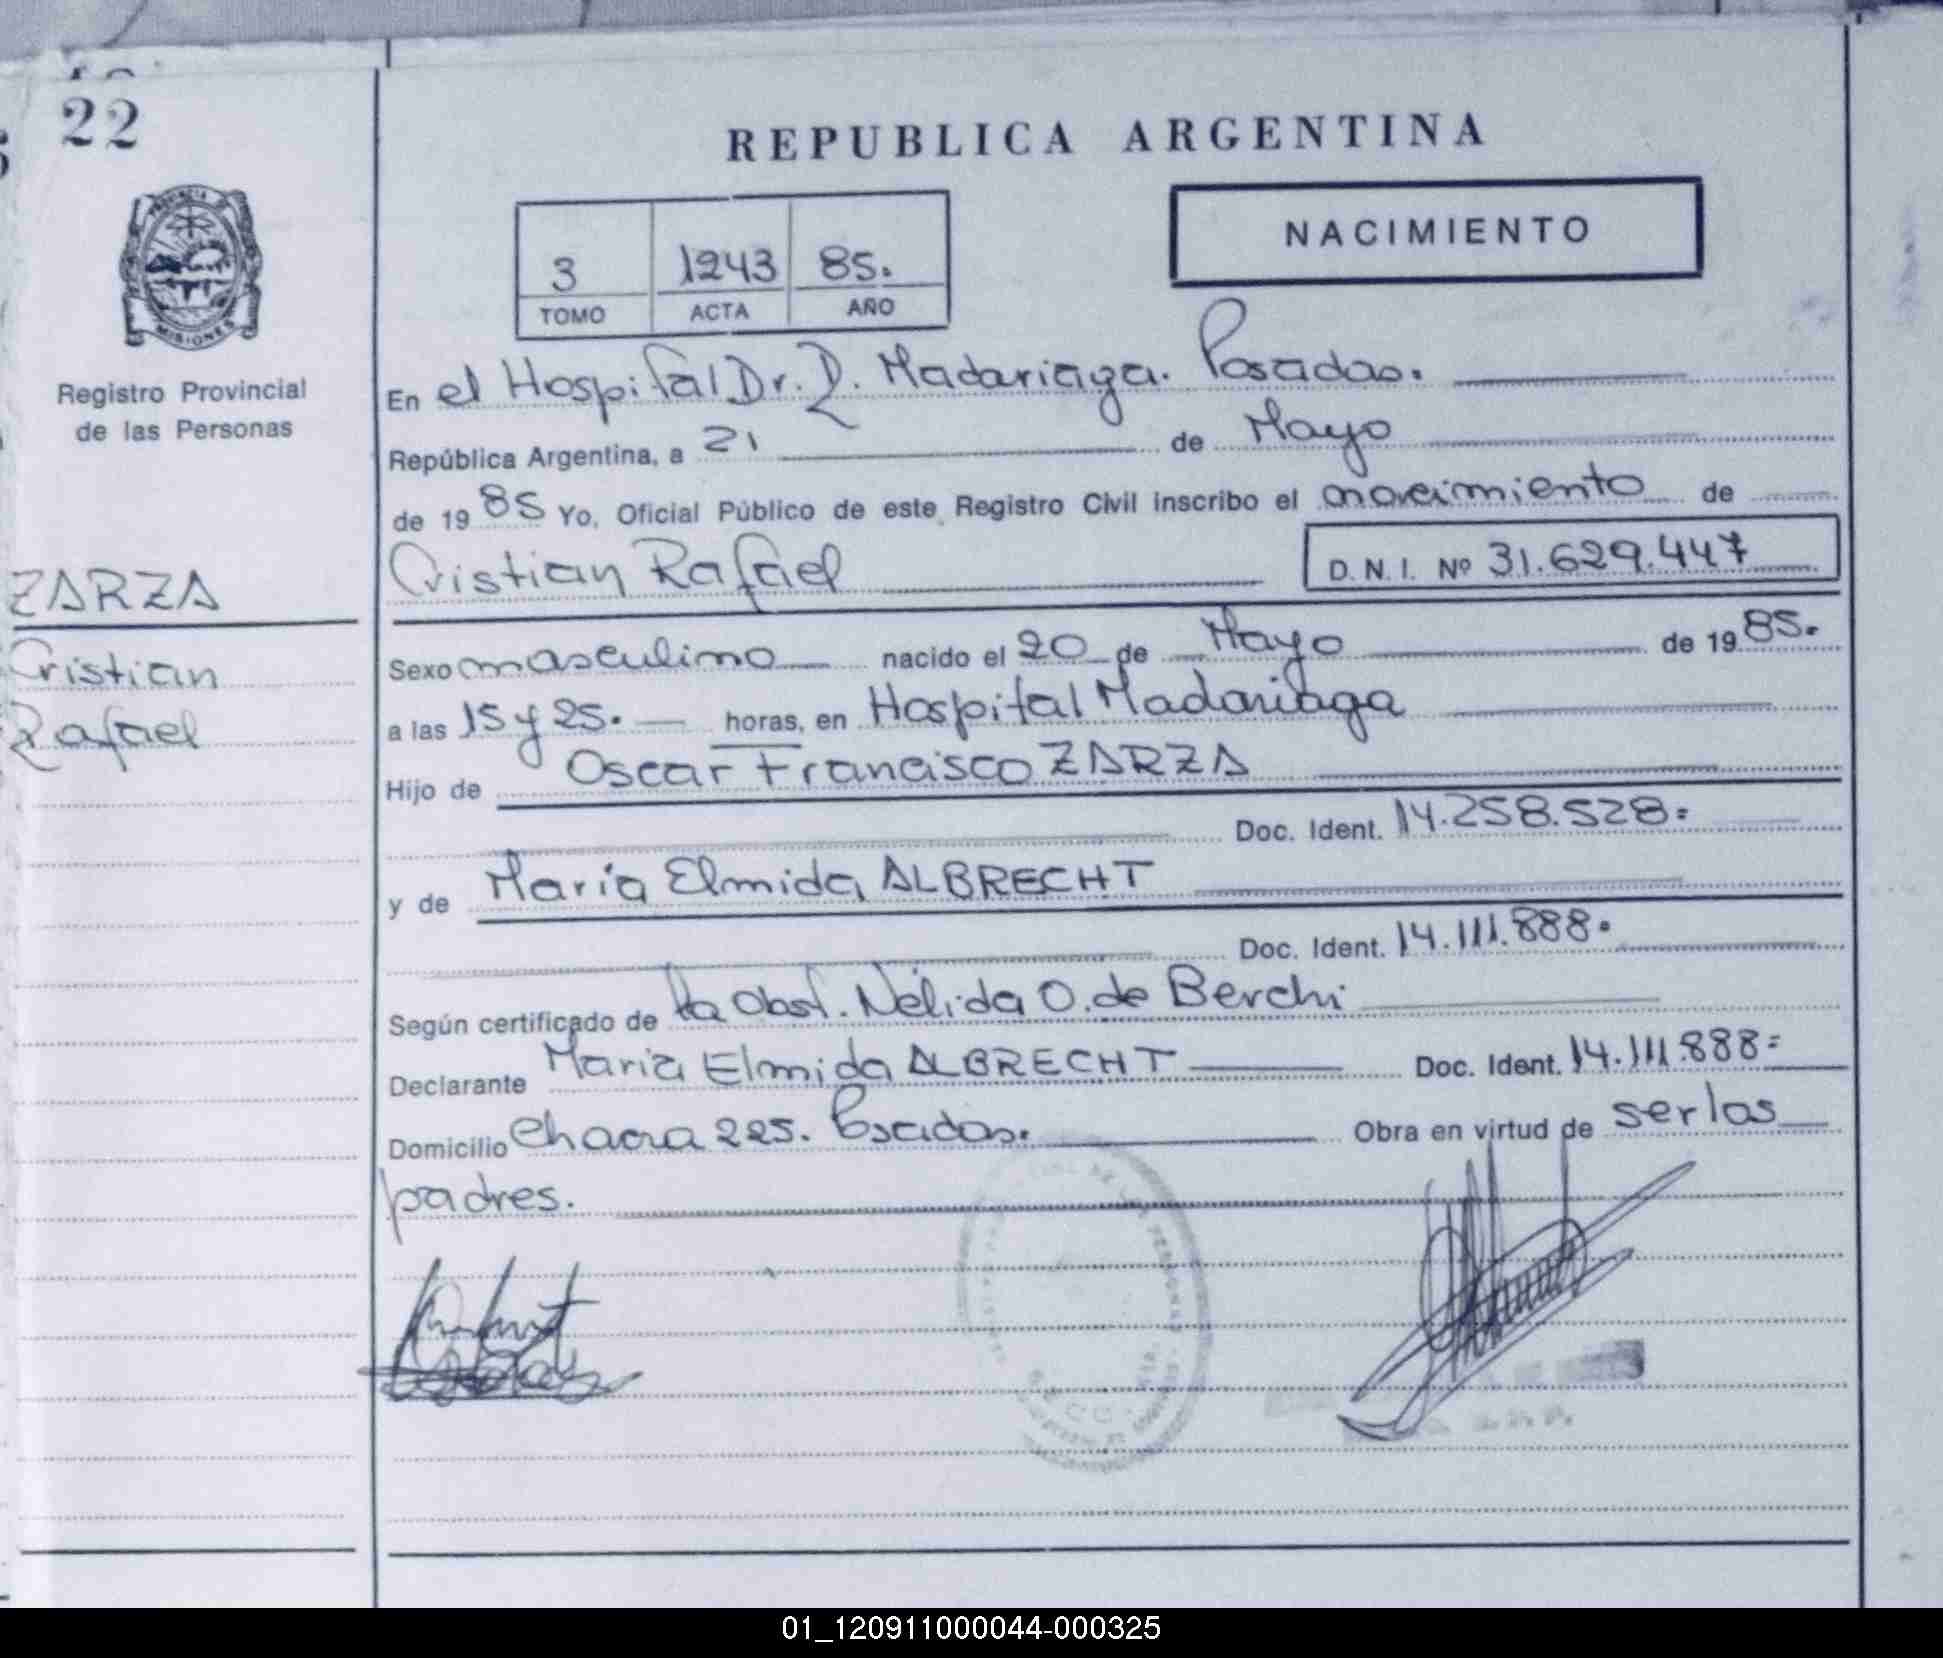 22
REPUBLICA ARGENTINA
PROVINCIA DE
MISIONES
NACIMIENTO
3 1243 85.
TOMO ACTA AÑO
Registro Provincial
de las Personas
En el Hospital Dr. R. Madariaga. Posadas.
República Argentina, a 21 de Mayo
de 1985 Yo, Oficial Público de este Registro Civil inscribo el nacimiento de
ZARZA
Cristian
Rafael
Cristian Rafael D.N.I. Nº 31.629.447
Sexo masculino nacido el 20 de Mayo de 1985.
a las 15 y 25. horas, en Hospital Madariaga
Hijo de Oscar Francisco ZARZA
Doc. Ident. 14.258.528=
y de María Elmida ALBRECHT
Doc. Ident. 14.111.888.
Según certificado de la Obst. Nélida O. de Berchi
Declarante María Elmida ALBRECHT Doc. Ident. 14.111.888=
Domicilio Chacra 225. Posadas. Obra en virtud de ser los
padres.
01_120911000044-000325